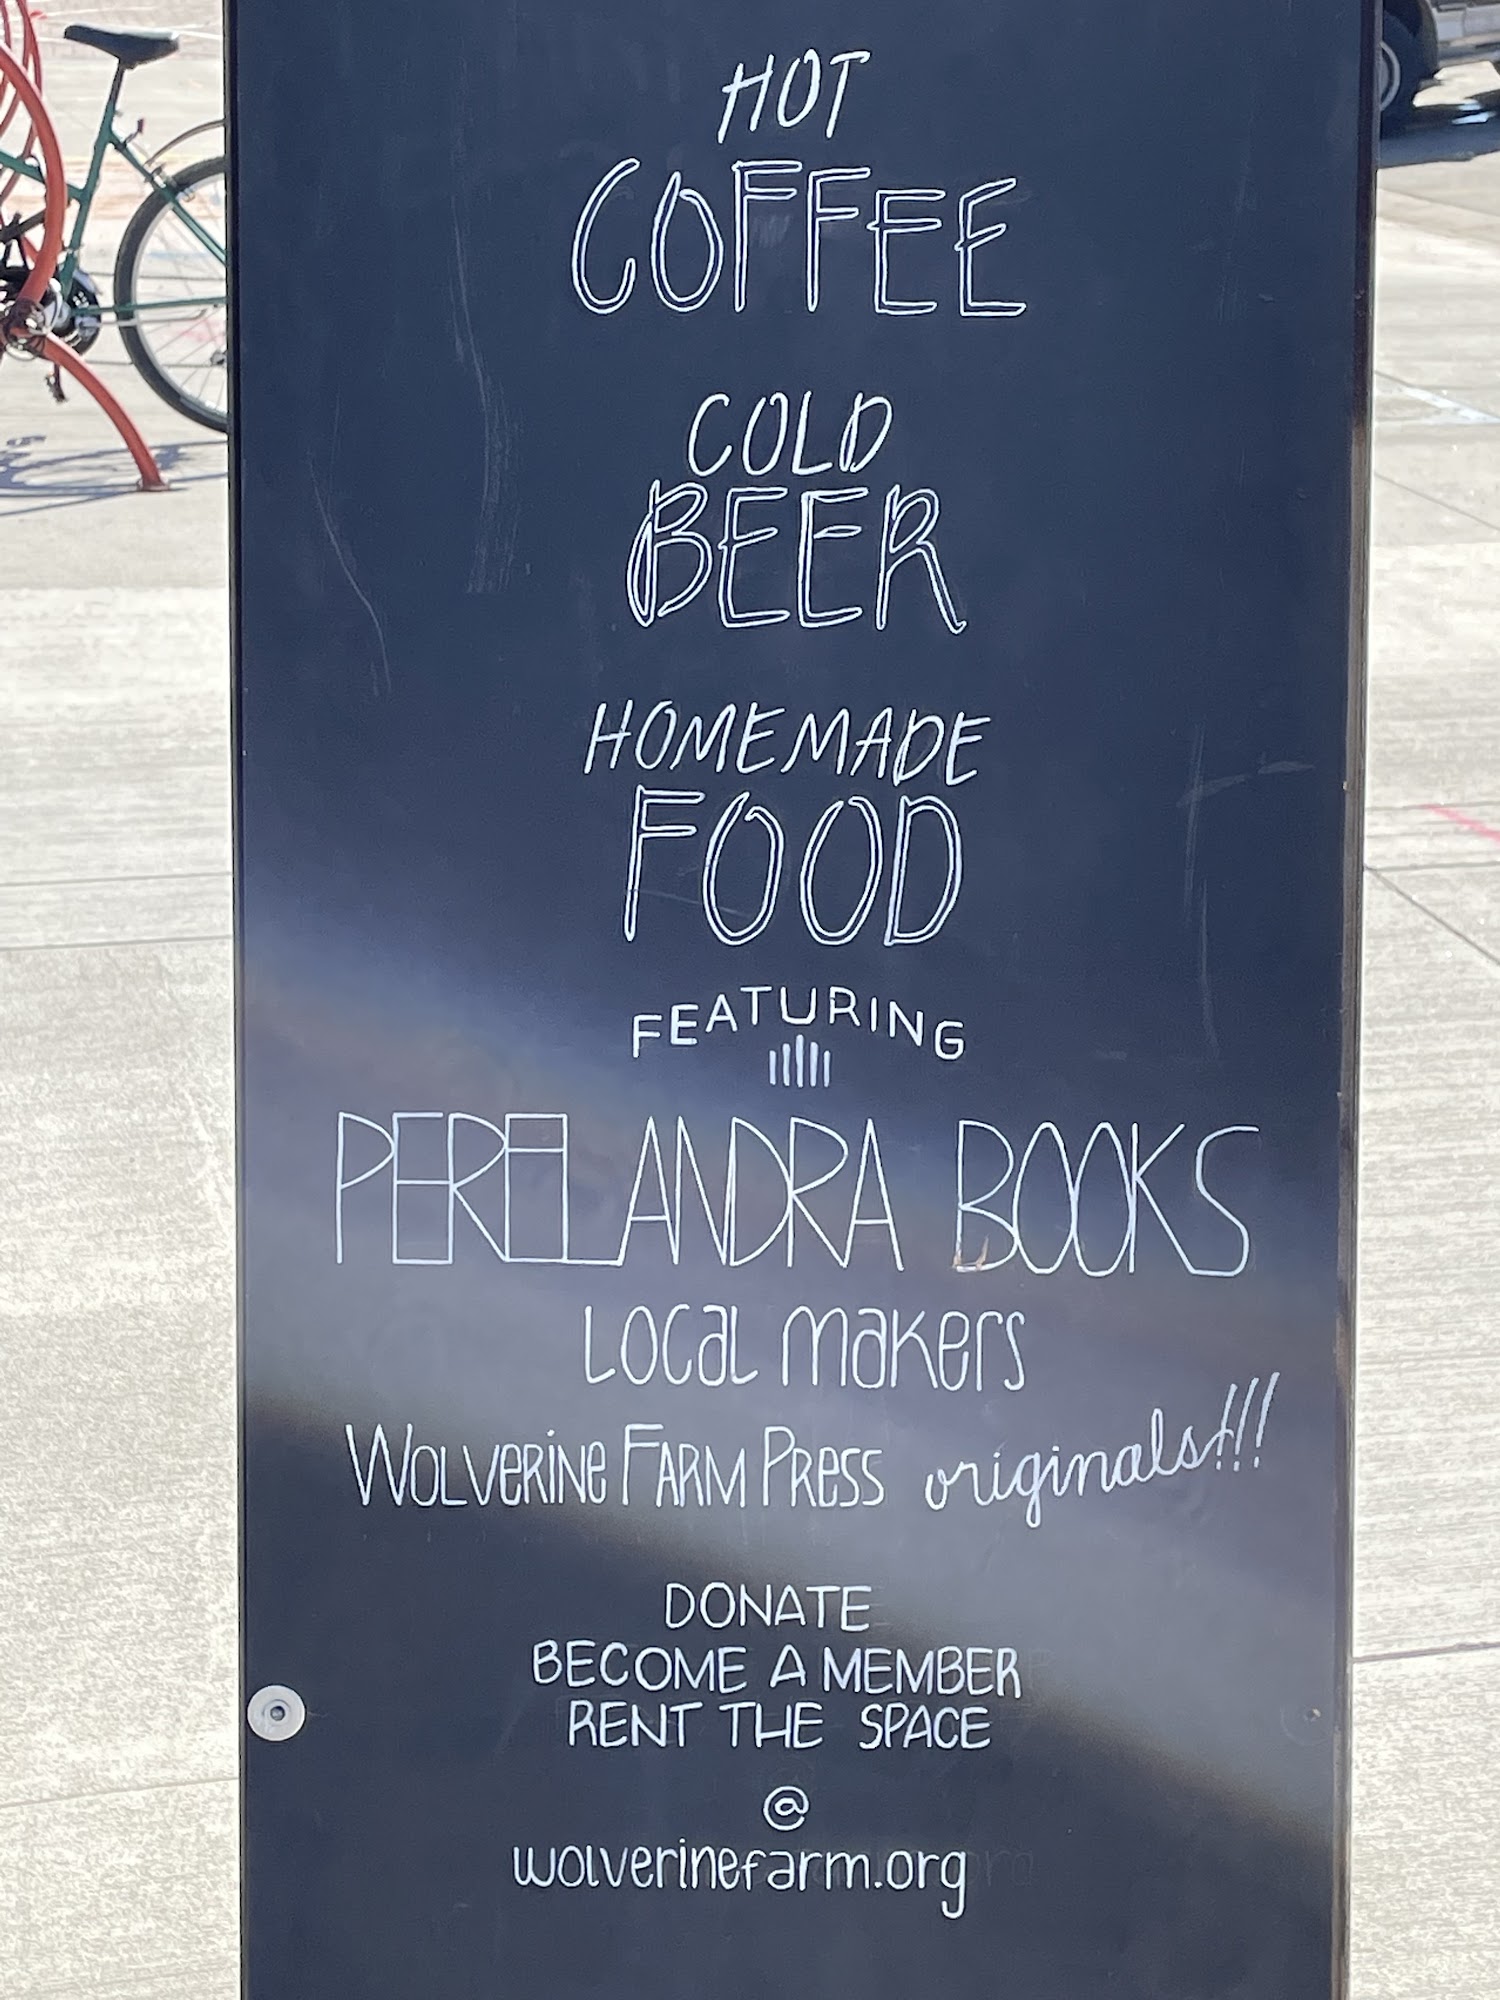 HOT
COFFEE
COLD
BEER
HOMEMADE
FOOD
FEATURING
PERELANDRA BOOKS
LOCAL MAKERS
WOLVERINE FARM PRESS originals!!!
DONATE
BECOME A MEMBER
RENT THE SPACE
@
wolverinefarm.org